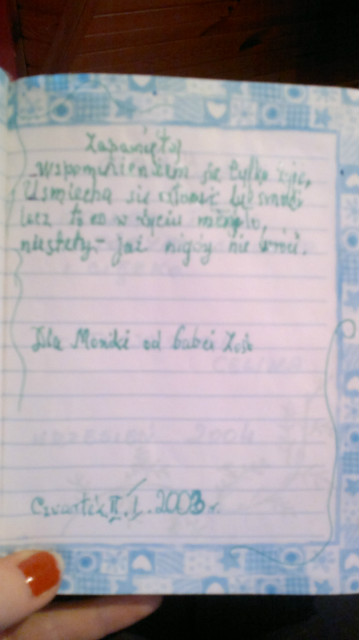 Zapamiętaj
Wspomnieniem się tylko żyje,
Uśmiecha się człowiek lub smuci
lecz to co w życiu minęło,
niestety - już nigdy nie wróci.
Dla Moniki od babci Zosi
Czwartek II. I. 2003 r.
WRZESIEŃ 2004